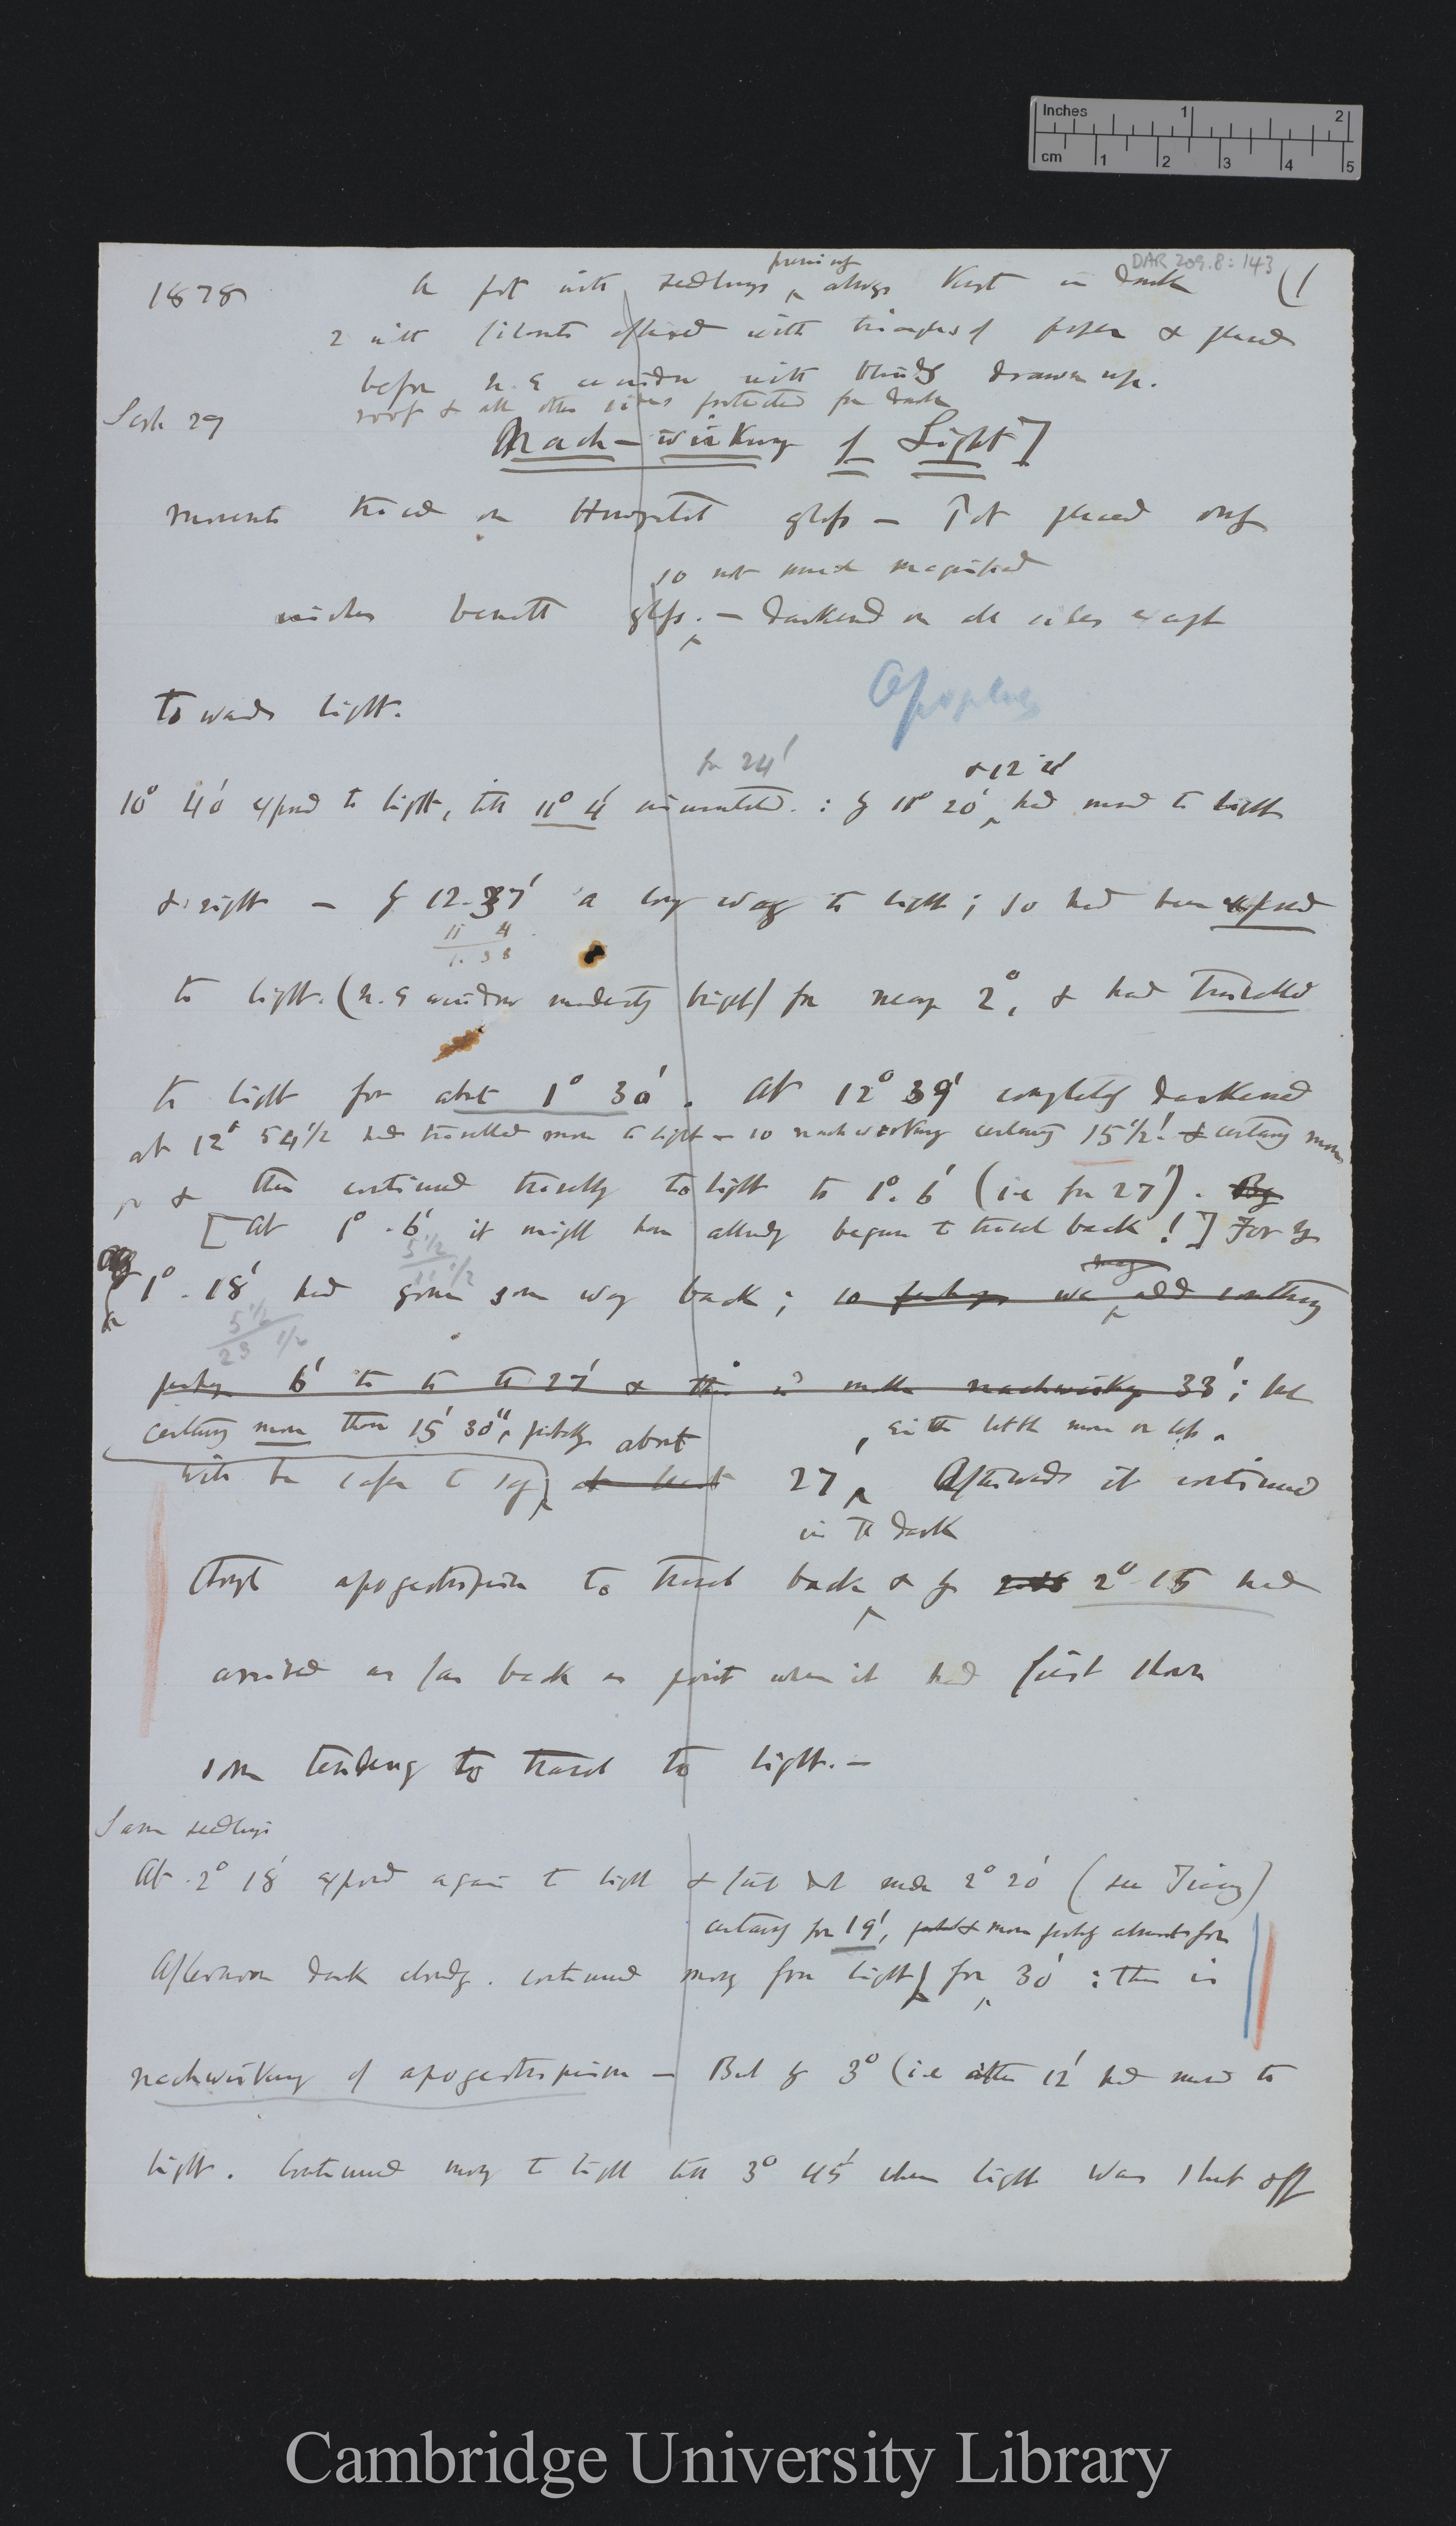 Inches 1 2
cm 1 2 3 4 5
DAR 209.8: 143
1878 A pot with seedlings previously always kept in dark (1
2 with filaments affixed with triangles of paper & placed
before N.E window with blinds drawn up.
Sept 29 roof & all other sides protected for dark
Nach-wirkung of Light]
movements traced on Horizontal glass — Pot placed only
so not much magnified
inches beneath glass. — darkened on all sides except
towards light.
Apoplus
for 24'
& 12 21'
10° 40' exposed to light, till 11° 4' : by 11° 20' had moved to light
& right — by 12.37' a long way to light; so had been exposed
11 4
1. 38
to light. (N.E window moderately bright) for nearly 2°, & had travelled
to light for about 1° 30'. At 12° 39' completely darkened
at 12° 54 1/2 had travelled more to light — so nachwirkung certainly 15 1/2'. & certainly more
& then continued travelling to light to 1°. 6' (i.e for 27'). By
[At 1°. 6' it might have already begun to travel back!] For by
5 1/2
11 1/2
1°. 18' had gone some way back; so perhaps we may add
5 1/2
23 1/2
perhaps 6' to 27' & this makes nachwirkung 33'; but
certainly more than 15' 30", probably about , either little more or less.
will be safer to say at least 27' Afterwards it continued
in the dark
through apogeotropism to travel back & by 2° 15 had
arrived as far back as point when it had first shown
some tendency to travel to light. —
Same seedlings
At 2° 18' exposed again to light & first dot made 2° 20' (see Tracing)
certainly for 19', more probably for
Afternoon dark cloudy. continued moving from light for 30' : this is
nachwirkung of apogeotropism — But by 3° (i.e after 12' had moved to
light. Continued moving to light till 3° 45' when light was shut off
Cambridge University Library